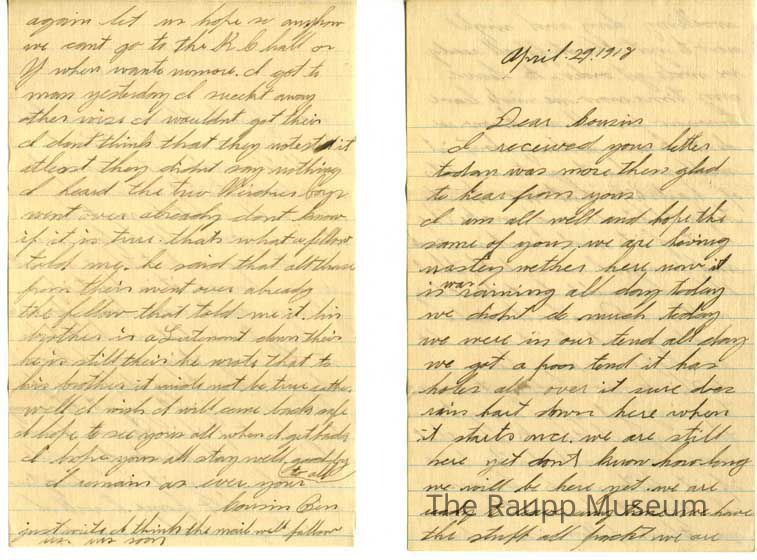 again let us hope so anyhow
we cant go to the K C hall or
Y when wants nomore. I got to
mass yesterday I sneekt away
other wise I wouldnt got their
I dont think that they notest it
atleast they didnt say nothing
I heard the two Weidner boys
went over already dont know
if it is true. thats what a fellow
told me. he said that all those
from their went over already
the fellow that told me it his
brother is a Lieutenant down their
he is still their he wrote that to
his brother it might not be true either
well I wish I will come back safe
I hope to see yous all when I get back
I hope yous all stay well good by
to all
I remain as ever your
Cousin Ben
just write I think the mail will follow
us soon
April. 29. 1918
Dear Cousin
I received your letter
today was more then glad
to hear from yous
I am all well and hope the
same of yous. we are having
nastey wether here now it
is was raining all day today
we didnt do much today
we were in our tend all day
we got a poor tend it has
holes all over it sure does
rain hart down here when
it starts once. we are still
here yet dont know how long
we will be here yet. we are
ready to leave any time we have
the stuff all packt we are
The Raupp Museum